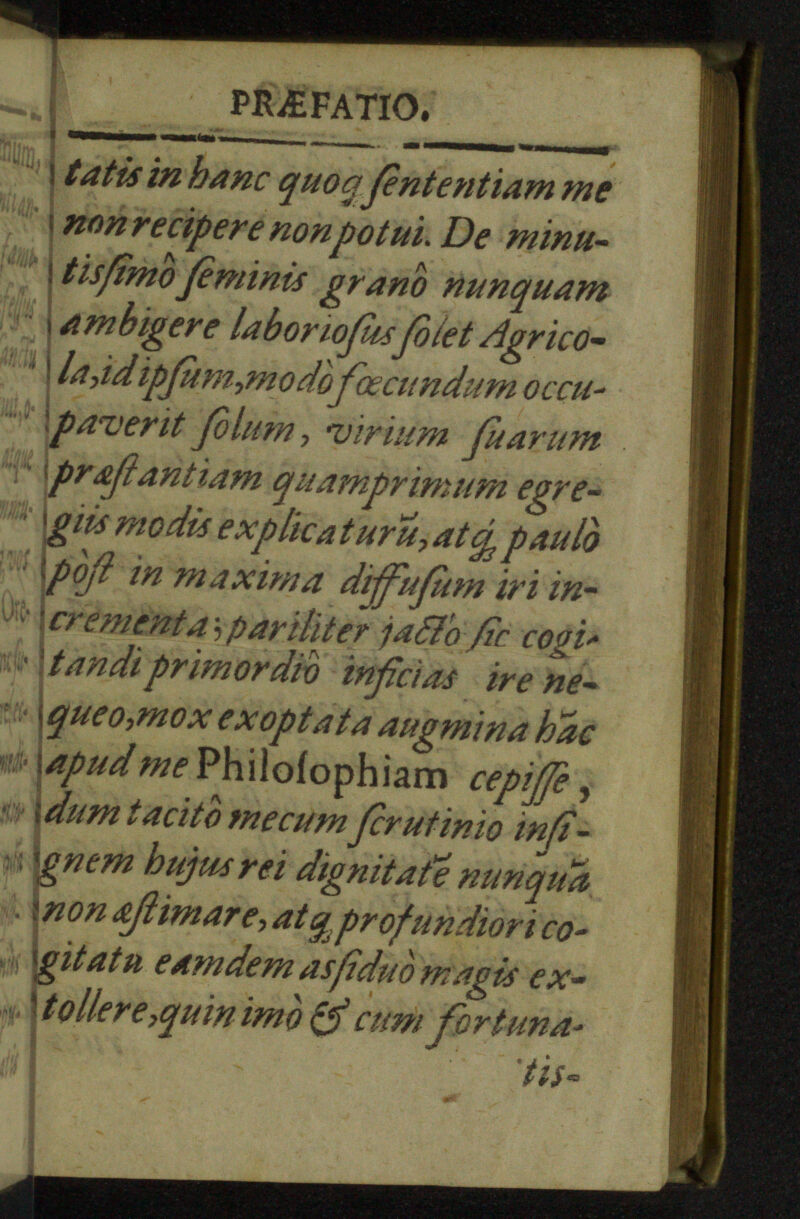 PRÆFATIO.
tatis in hanc quoq; ſententiam me
non recipere non potui. De minu-
tisſimò ſeminis granò nunquam
ambigere laborioſus ſolet Agrico-
la, id ipſum, modò fœcundum occu-
paverit ſolum, virium ſuarum
præſtantiam quamprimum egre-
giis modis explicaturū, atq; paulò
pòſt in maxima diffuſum iri in-
crementa; pariliter jacto ſic cogi-
tandi primordiò inficias ire ne-
queo, mox exoptata augmina hāc
apud me Philoſophiam cepiſſe,
dum tacitò mecum ſcrutinio inſi-
gnem hujus rei dignitatē nunquā
non æſtimare, atq; profundiori co-
gitatu eamdem asſiduò magis ex-
tollere, quin imò & cum fortuna-
tis-